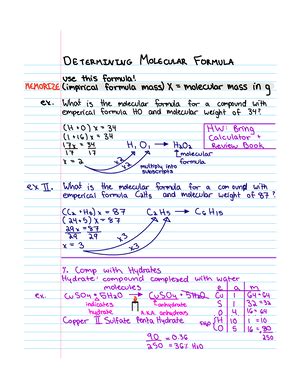 DETERMINING MOLECULAR FORMULA
use this formula!
MEMORIZE (impirical formula mass) X = molecular mass in g
ex. What is the molecular formula for a compound with
emperical formula HO and molecular weight of 34?
(H + O) x = 34
(1+16) x = 34
17x = 34
17 17
x = 2
H, O, → H2O2
x2
x2
multiply into
subscripts
molecular
formula
HW: Bring
Calculator +
Review Book
ex II. What is the molecular formula for a compound with
emperical formula C2H5 and molecular weight of 87?
(C2 + H5) x = 87
(24+5) x = 87
29x = 87
29 29
x = 3
C2H5 → C6H15
x3
x3
% Comp with Hydrates
Hydrate: compound complexed with water
molecules
ex. CuSO4 • 5H2O → CuSO4 + 5H2O
indicates
hydrate
anhydrate
A.K.A. anhydrous
Copper II Sulfate Penta Hydrate
e a m
Cu 1 64=64
S 1 32=32
O 4 16=64
H 10 1=10
O 5 16=80
250
90 = 0.36
250 = 36% H2O